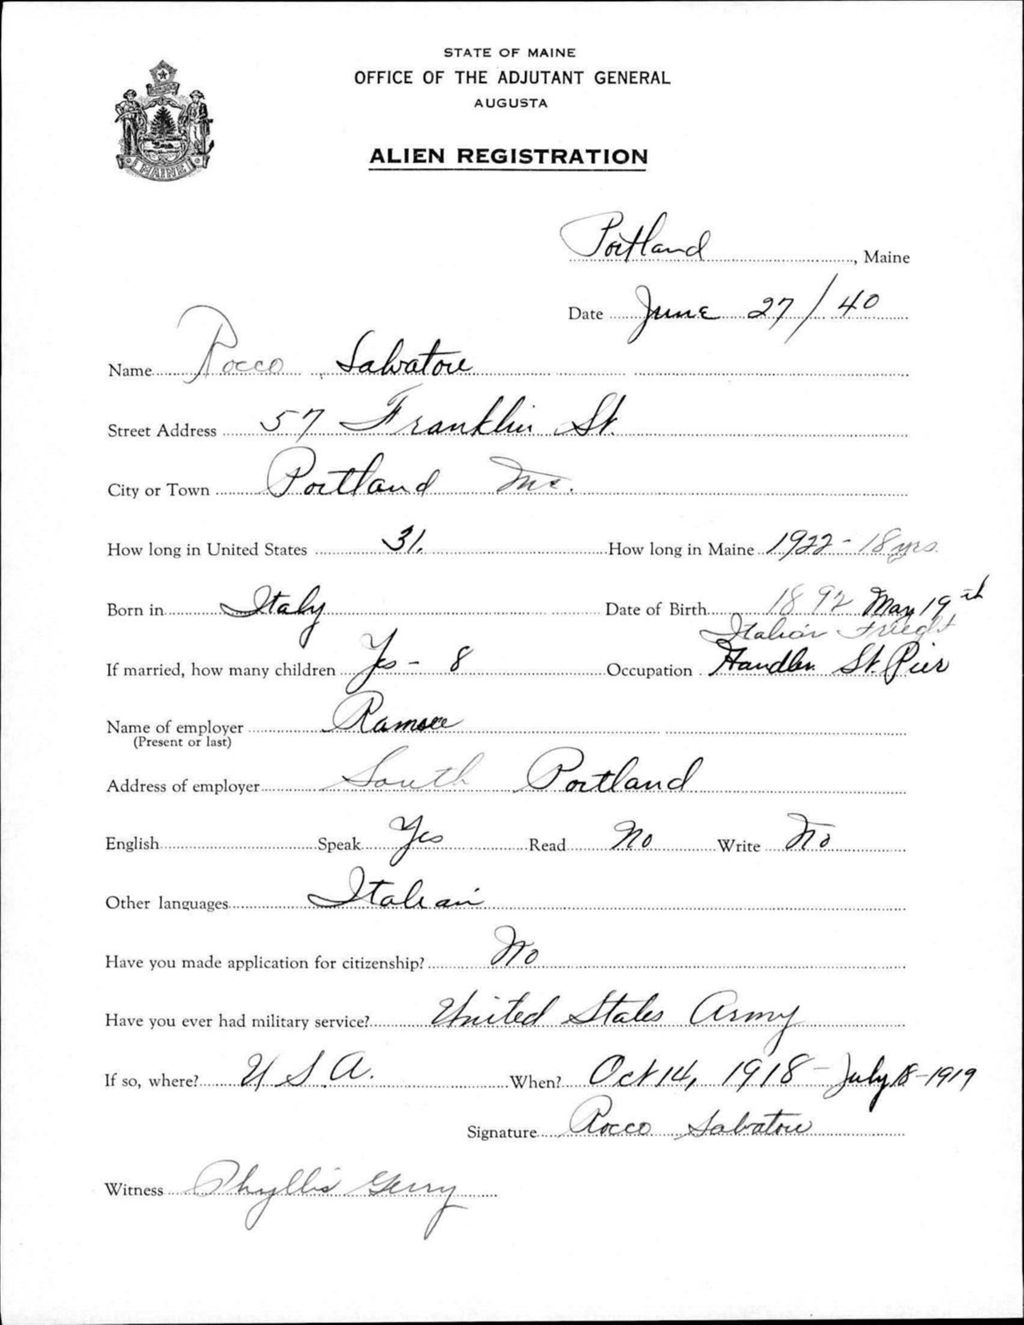 STATE OF MAINE
OFFICE OF THE ADJUTANT GENERAL
AUGUSTA
ALIEN REGISTRATION
MAINE
Portland, Maine
Date June 27/40
Name Rocco Salvatore
Street Address 57 Franklin St.
City or Town Portland Me.
How long in United States 31. How long in Maine 1922 - 18 yrs.
Born in Italy Date of Birth 1892 May 19th
Italian Freight
If married, how many children Yes - 8 Occupation Handler St. Pier
Name of employer
(Present or last)
Address of employer South Portland
English Speak Yes Read No Write No
Other languages Italian
Have you made application for citizenship? No
Have you ever had military service? United States Army
If so, where? U.S.A. When? Oct 14, 1918 - July 18 - 1919
Signature Rocco Salvatore
Witness Phyllis Gerry